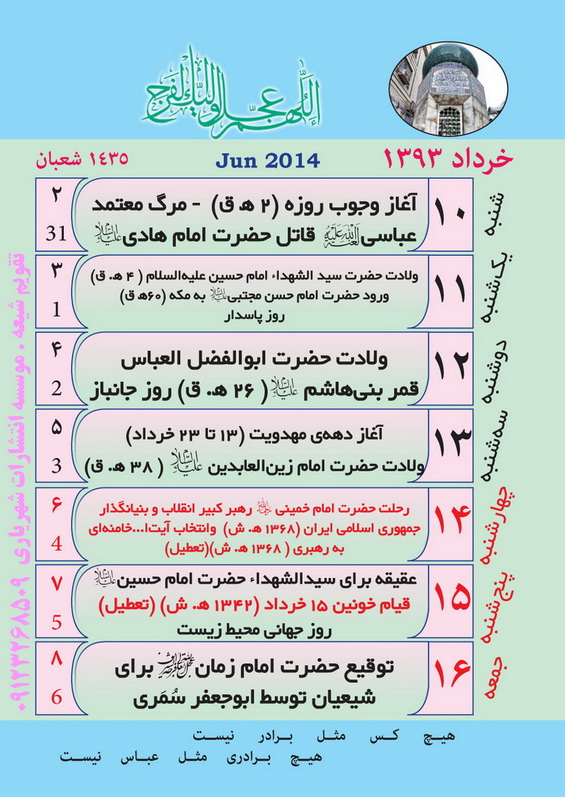 اللهم عجل لولیك الفرج
خرداد ۱۳۹۳
Jun 2014
۱۴۳۵ شعبان
شنبه
۱۰
آغاز وجوب روزه (۲ ه‍ ق) - مرگ معتمد
عباسی لعنة‌الله‌علیه قاتل حضرت امام هادی علیه‌السلام
۲
31
یک‌شنبه
۱۱
ولادت حضرت سید الشهداء امام حسین علیه‌السلام ( ۴ ه‍. ق)
ورود حضرت امام حسن مجتبی علیه‌السلام به مکه (۶۰ه‍ ق)
روز پاسدار
۳
1
دوشنبه
۱۲
ولادت حضرت ابوالفضل العباس
قمر بنی‌هاشم علیه‌السلام ( ۲۶ ه‍. ق) روز جانباز
۴
2
سه‌شنبه
۱۳
آغاز دهه‌ی مهدویت (۱۳ تا ۲۳ خرداد)
ولادت حضرت امام زین‌العابدین علیه‌السلام ( ۳۸ ه‍. ق)
۵
3
چهارشنبه
۱۴
رحلت حضرت امام خمینی رهبر کبیر انقلاب و بنیانگذار
جمهوری اسلامی ایران (۱۳۶۸ ه‍. ش) وانتخاب آیت‌ا...خامنه‌ای
به رهبری ( ۱۳۶۸ ه‍. ش)(تعطیل)
۶
4
پنج‌شنبه
۱۵
عقیقه برای سیدالشهداء حضرت امام حسین علیه‌السلام
قیام خونین ۱۵ خرداد (۱۳۴۲ ه‍. ش) (تعطیل)
روز جهانی محیط زیست
۷
5
جمعه
۱۶
توقیع حضرت امام زمان برای
شیعیان توسط ابوجعفر سُمَری
۸
6
تقویم شیعه . موسسه انتشارات شهریاری ۰۹۱۲۳۲۶۸۵۰۹
هیچ کس مثل برادر نیست
هیچ برادری مثل عباس نیست